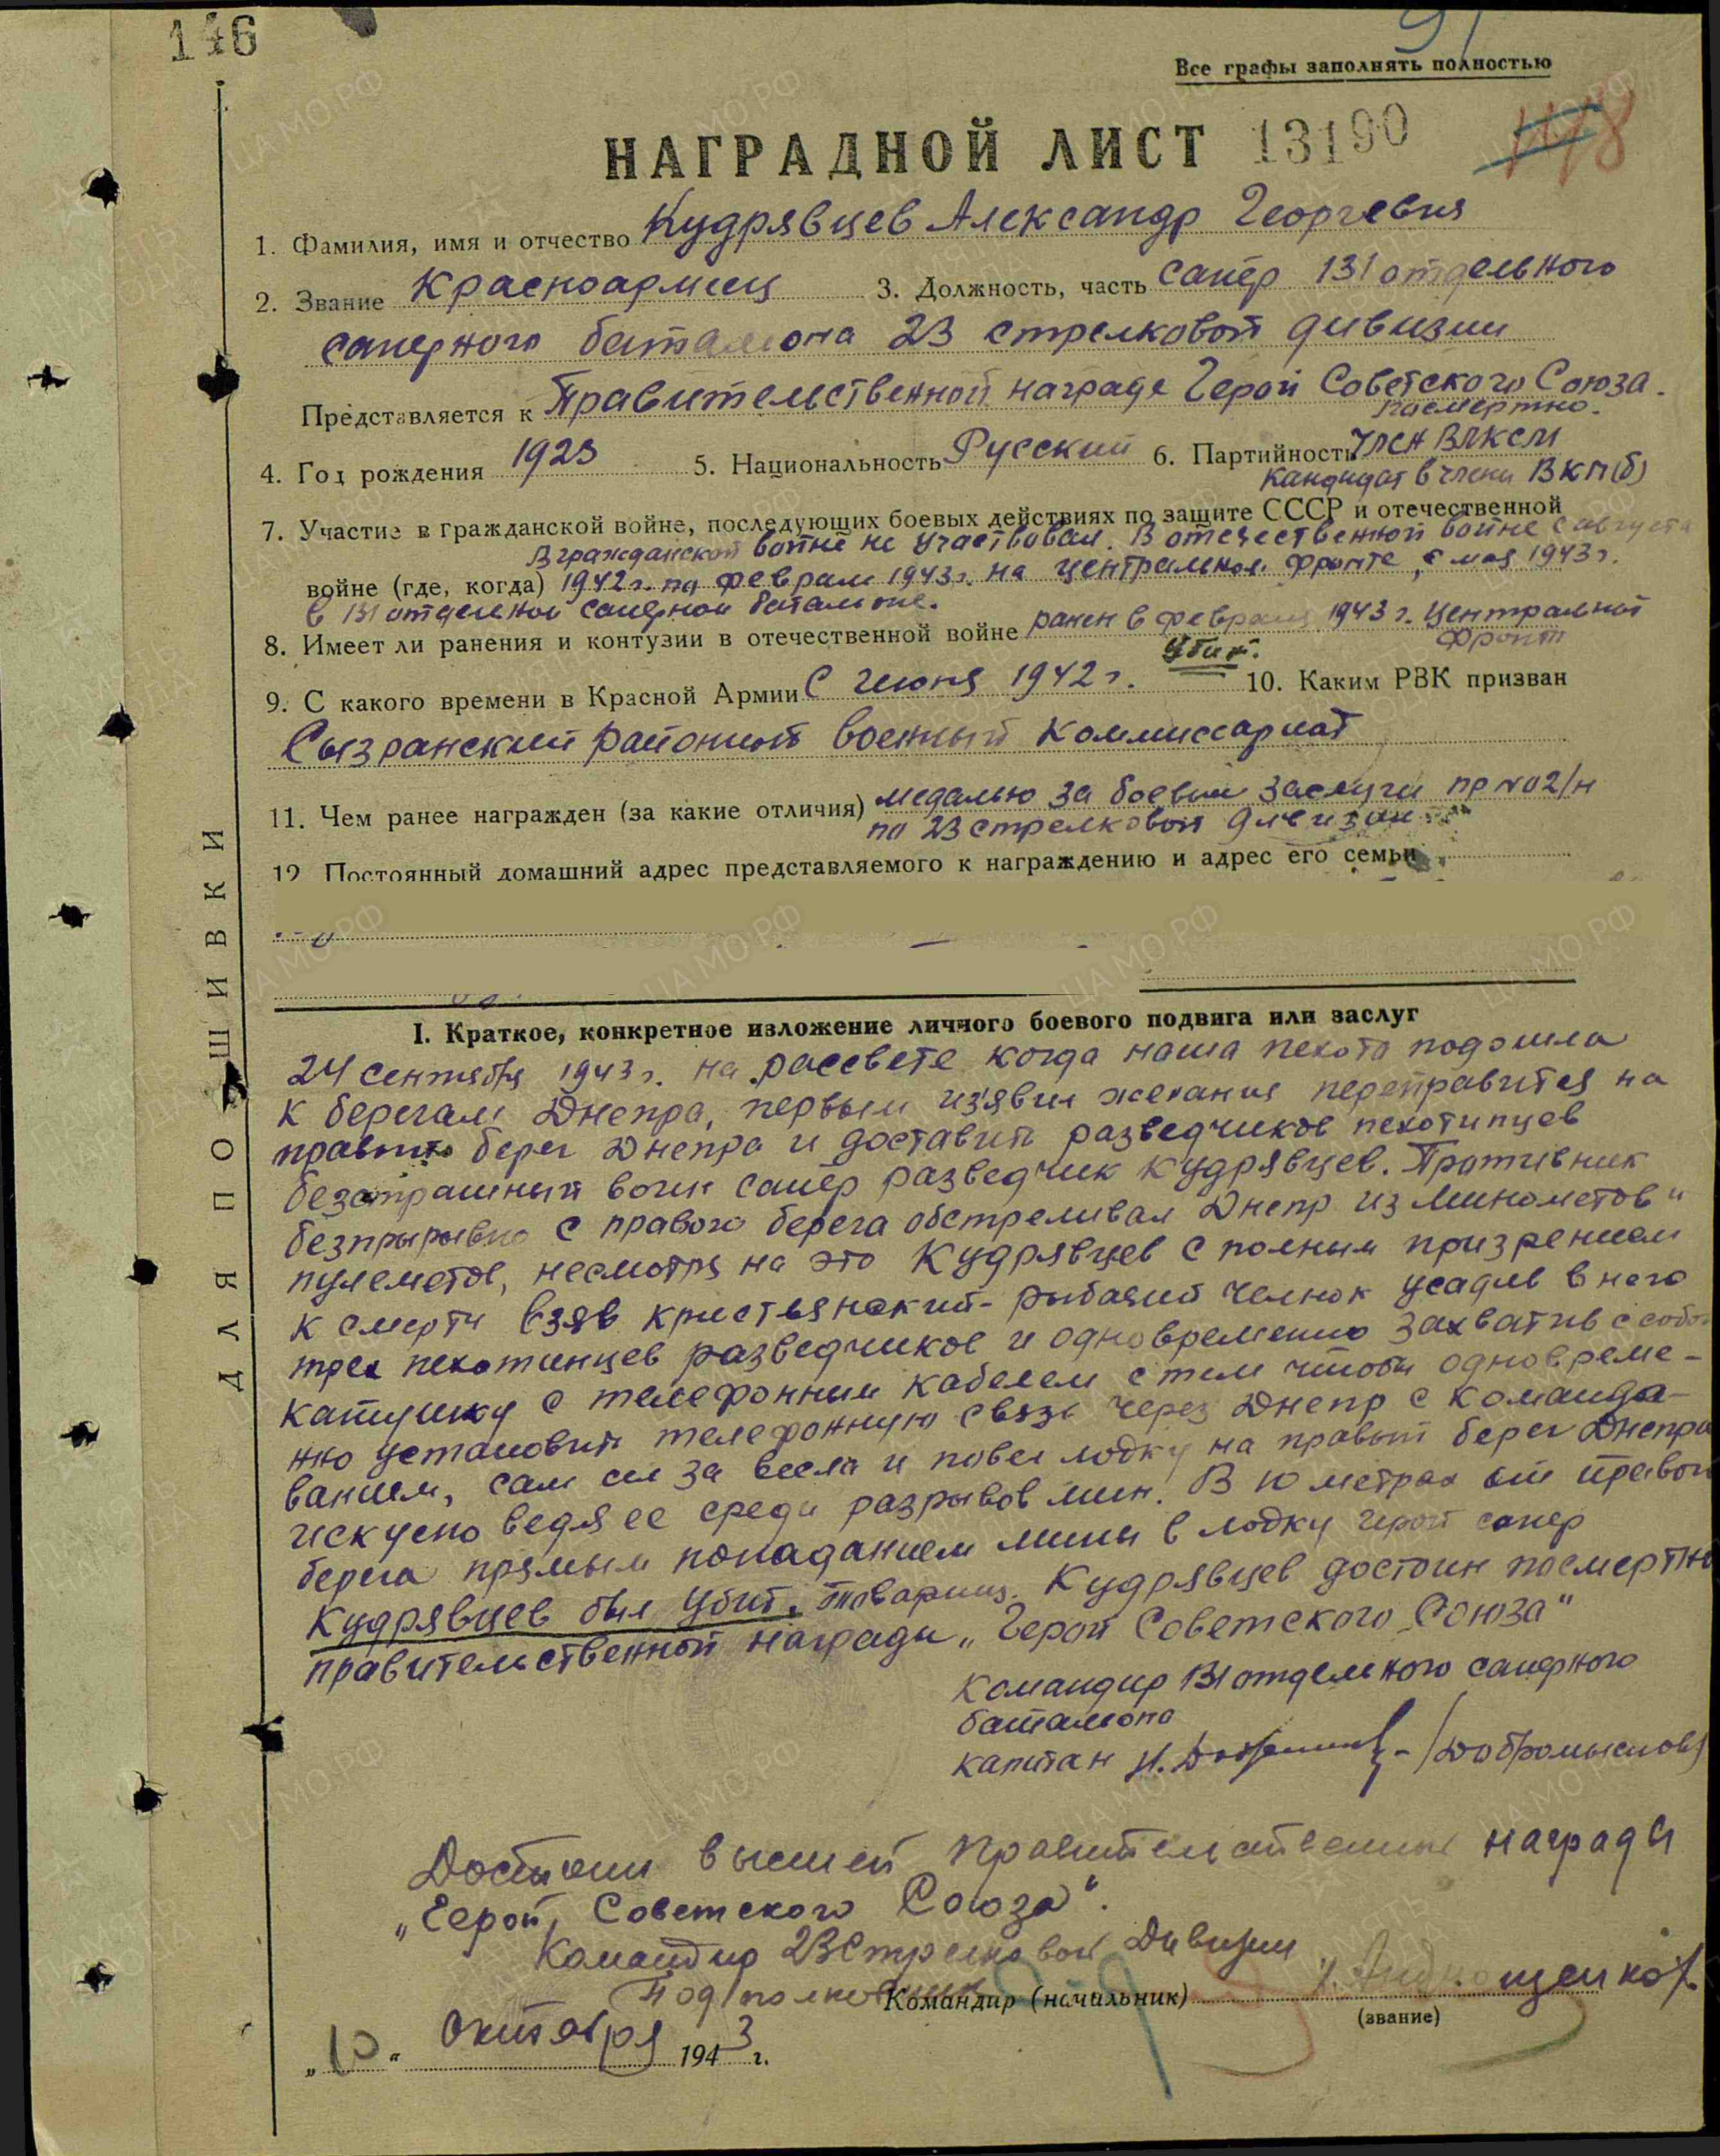 146
91
Все графы заполнять полностью
НАГРАДНОЙ ЛИСТ 13190
1. Фамилия, имя и отчество Кудрявцев Александр Георгевия
2. Звание Красноармеец 3. Должность, часть сапёр 131 отдельного
саперного баталиона 23 стрелковой дивизии
Представляется к Правительственной награде Герой Советского Союза.
посмертно.
4. Год рождения 1923 5. Национальность Русский 6. Партийность Член ВЛКСМ
Кандидат в члены ВКП(б)
7. Участие в гражданской войне, последующих боевых действиях по защите СССР и отечественной
В гражданской войне не участвовал. В отечественной войне с августа
войне (где, когда) 1942 г. по февраль 1943 г. на центральном фронте, с мая 1943 г.
в 131 отдельном саперном баталионе.
8. Имеет ли ранения и контузии в отечественной войне ранен в феврале 1943 г. Центральной
фронт
Убит.
9. С какого времени в Красной Армии С июня 1942 г. 10. Каким РВК призван
Сызранский районный военный Коммиссариат
11. Чем ранее награжден (за какие отличия) медалью за боевые заслуги пр №02/н
по 23 стрелковой дивизии
12. Постоянный домашний адрес представляемого к награждению и адрес его семьи
I. Краткое, конкретное изложение личного боевого подвига или заслуг
24 сентября 1943 г. на рассвете когда наша пехота подошла
к берегам Днепра, первым из'явил желания переправится на
правый берег Днепра и доставить разведчиков пехотинцев
безстрашный воин сапёр разведчик Кудрявцев. Противник
безпрырывно с правого берега обстреливал Днепр из минометов и
пулеметов, несмотря на это Кудрявцев с полным призрением
к смерти взяв кристьянский-рыбачий челнок усадив в него
трех пехотинцев разведчиков и одновременно захватив с собой
катушку с телефонным кабелем с тем чтобы одновреме-
но установить телефонную связь через Днепр с командо-
ванием, сам сел за весла и повел лодку на правый берег Днепра
искусно ведя ее среди разрывов мин. В 10 метрах от правого
берега прямым попаданием мины в лодку герой сапер
Кудрявцев был убит. Товарищ Кудрявцев достоин посмертно
правительственной награды „Герой Советского Союза"
Командир 131 отдельного саперного
баталиона
капитан /Добромыслов/
Достоин высшей правительственной награды
„Герой Советского Союза".
Командир 23 Стрелковой Дивизии
Подполковник
Командир (начальник)
(звание)
„10" октября 1943 г.
ДЛЯ ПОДШИВКИ
ЦА МО.РФ